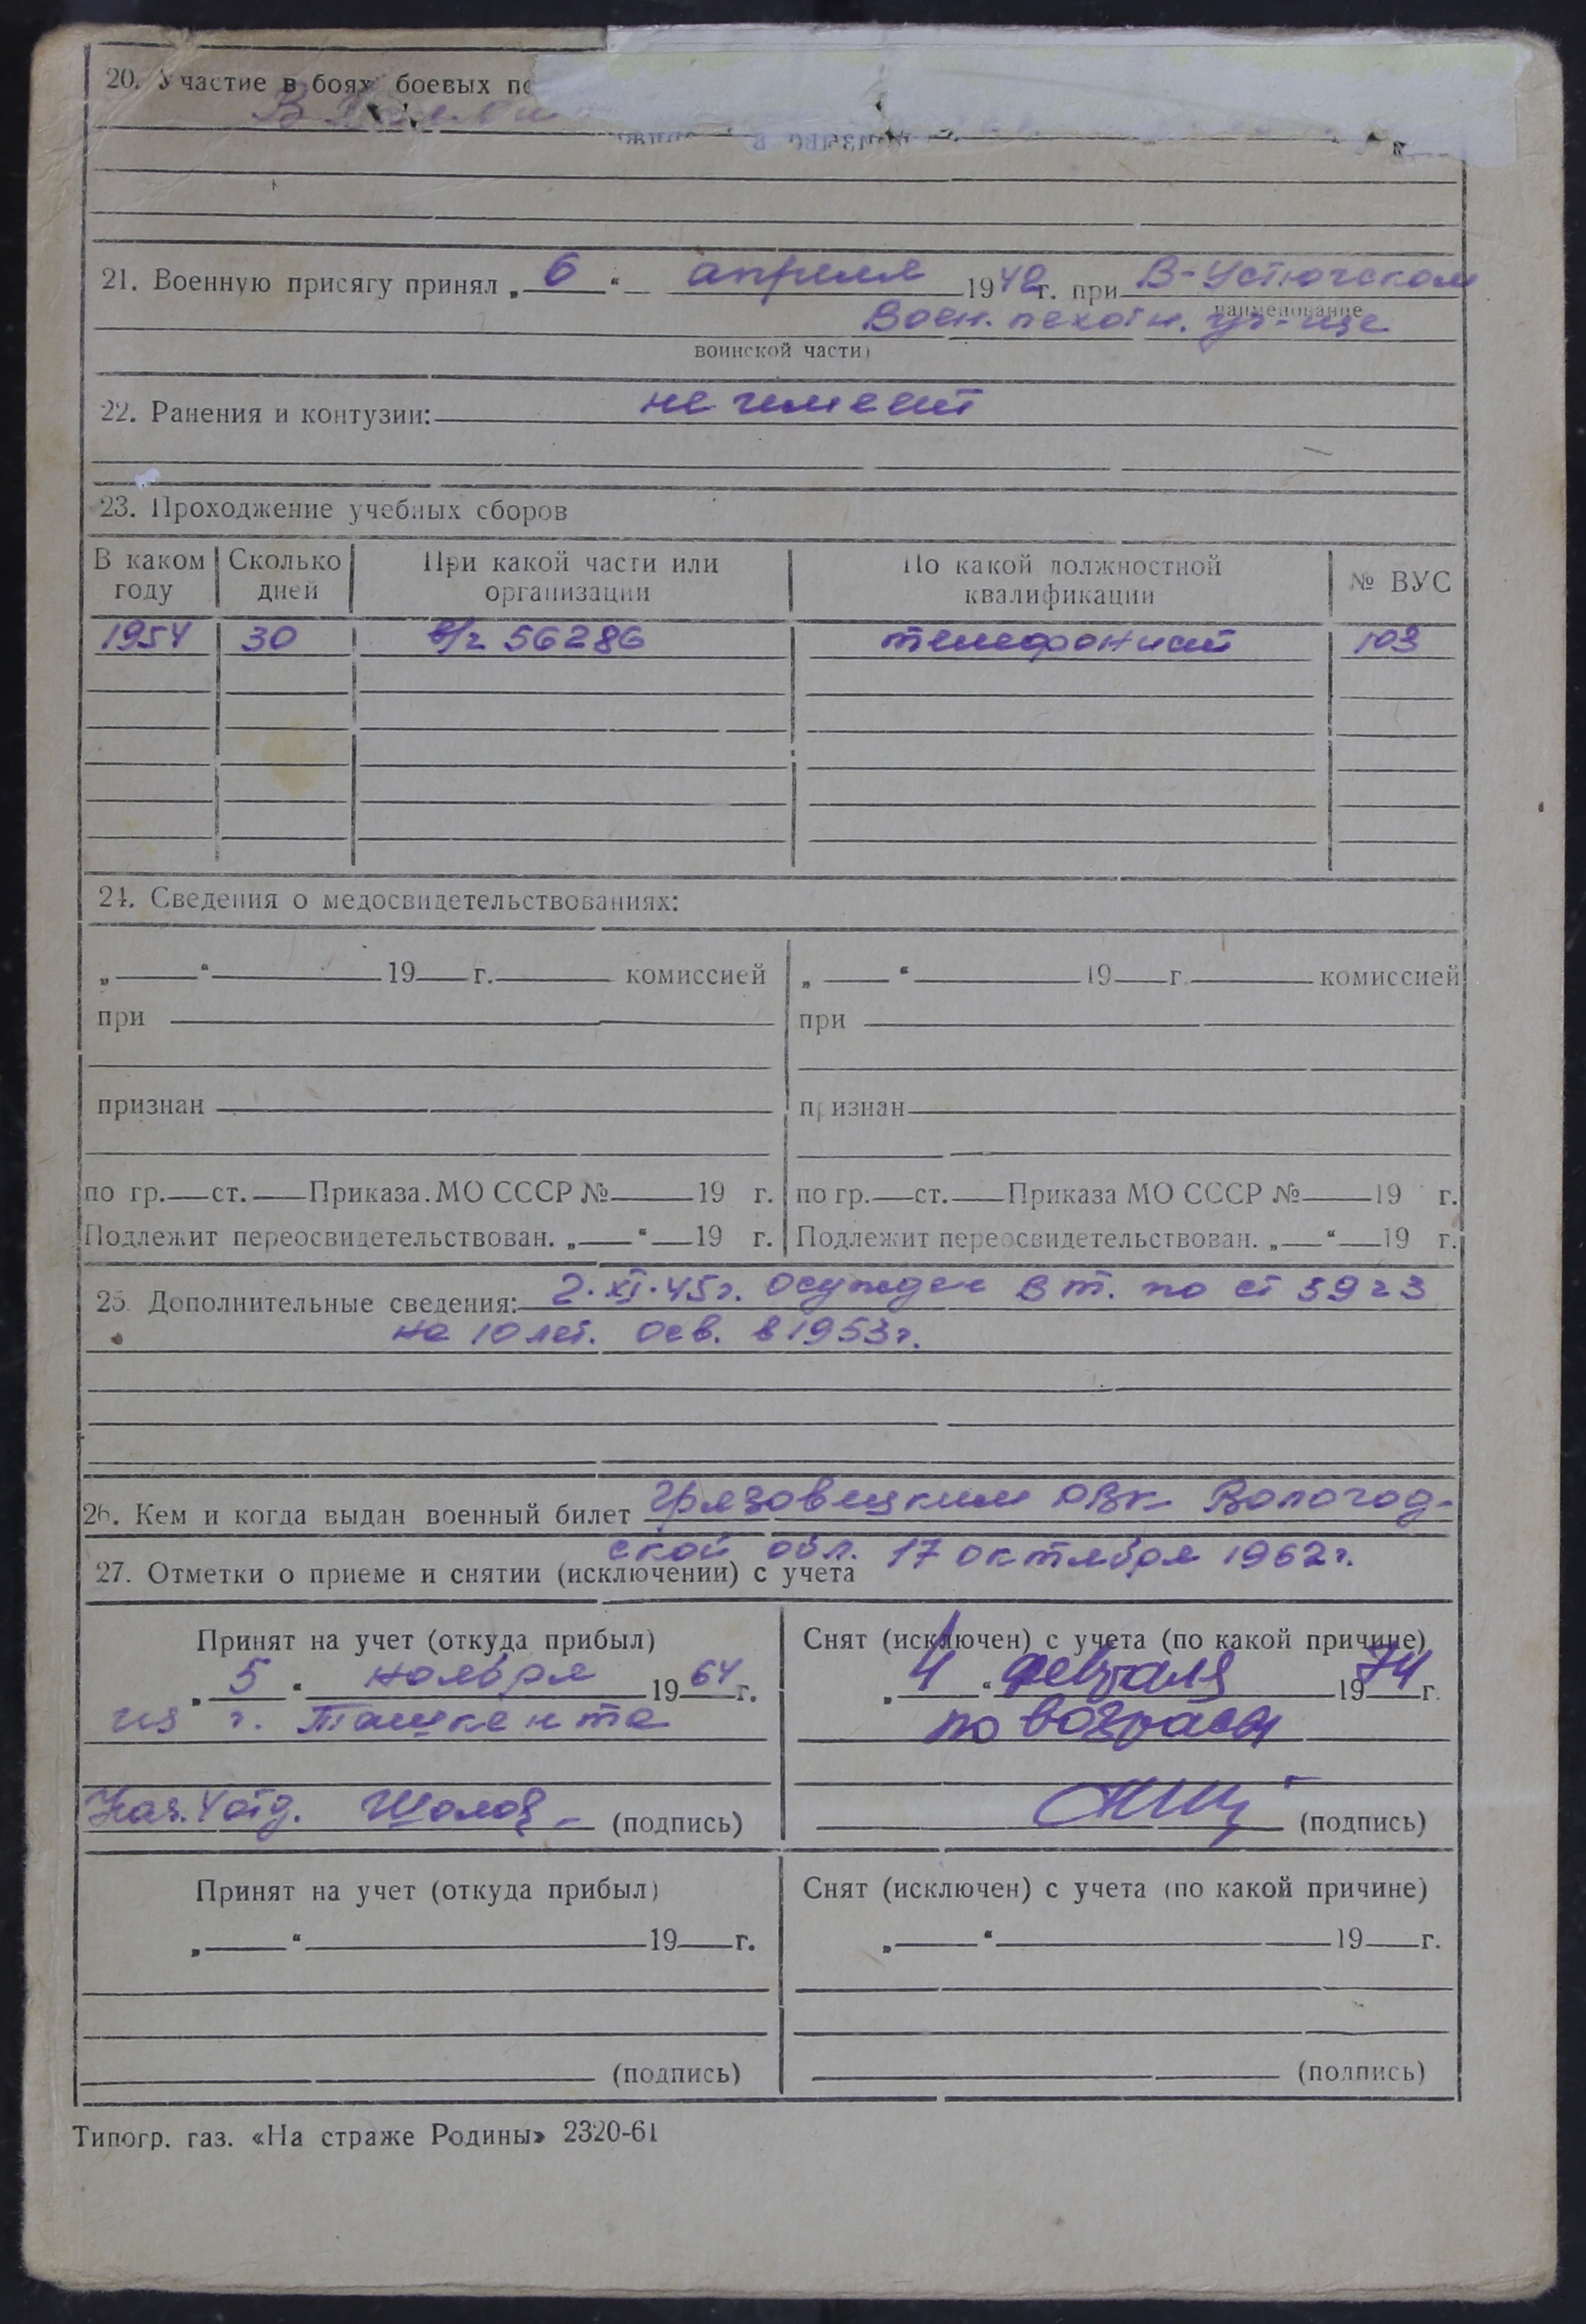 20. Участие в боях боевых по
21. Военную присягу принял „ 6 “ апреля 1942г. при В-Устюгском
наименование
Воен. пехотн. уч-ще
воинской части)
22. Ранения и контузии: не имеет
23. Проходжение учебных сборов
В каком году Сколько дней При какой части или организации По какой должностной квалификации № ВУС
1954 30 в/ч 56286 телефонист 103
24. Сведения о медосвидетельствованиях:
„ “ 19 г. комиссией „ “ 19 г. комиссией
при при
признан признан
по гр. ст. Приказа МО СССР № 19 г. по гр. ст. Приказа МО СССР № 19 г.
Подлежит переосвидетельствован. „ “ 19 г. Подлежит переосвидетельствован. „ “ 19 г.
25. Дополнительные сведения: 2.XI.45г. осужден Вт. по ст 59 ч 3
на 10 лет. осв. в 1953г.
26. Кем и когда выдан военный билет Грязовецким ОВК Вологод-
ской обл. 17 октября 1962г.
27. Отметки о приеме и снятии (исключении) с учета
Принят на учет (откуда прибыл) Снят (исключен) с учета (по какой причине)
„ 5 “ ноября 1964 г. „ 4 “ февраля 1974 г.
из г. Ташкента по возрасту
Нач. 4 отд. (подпись) (подпись)
Принят на учет (откуда прибыл) Снят (исключен) с учета (по какой причине)
„ “ 19 г. „ “ 19 г.
(подпись) (подпись)
Типогр. газ. «На страже Родины» 2320-61